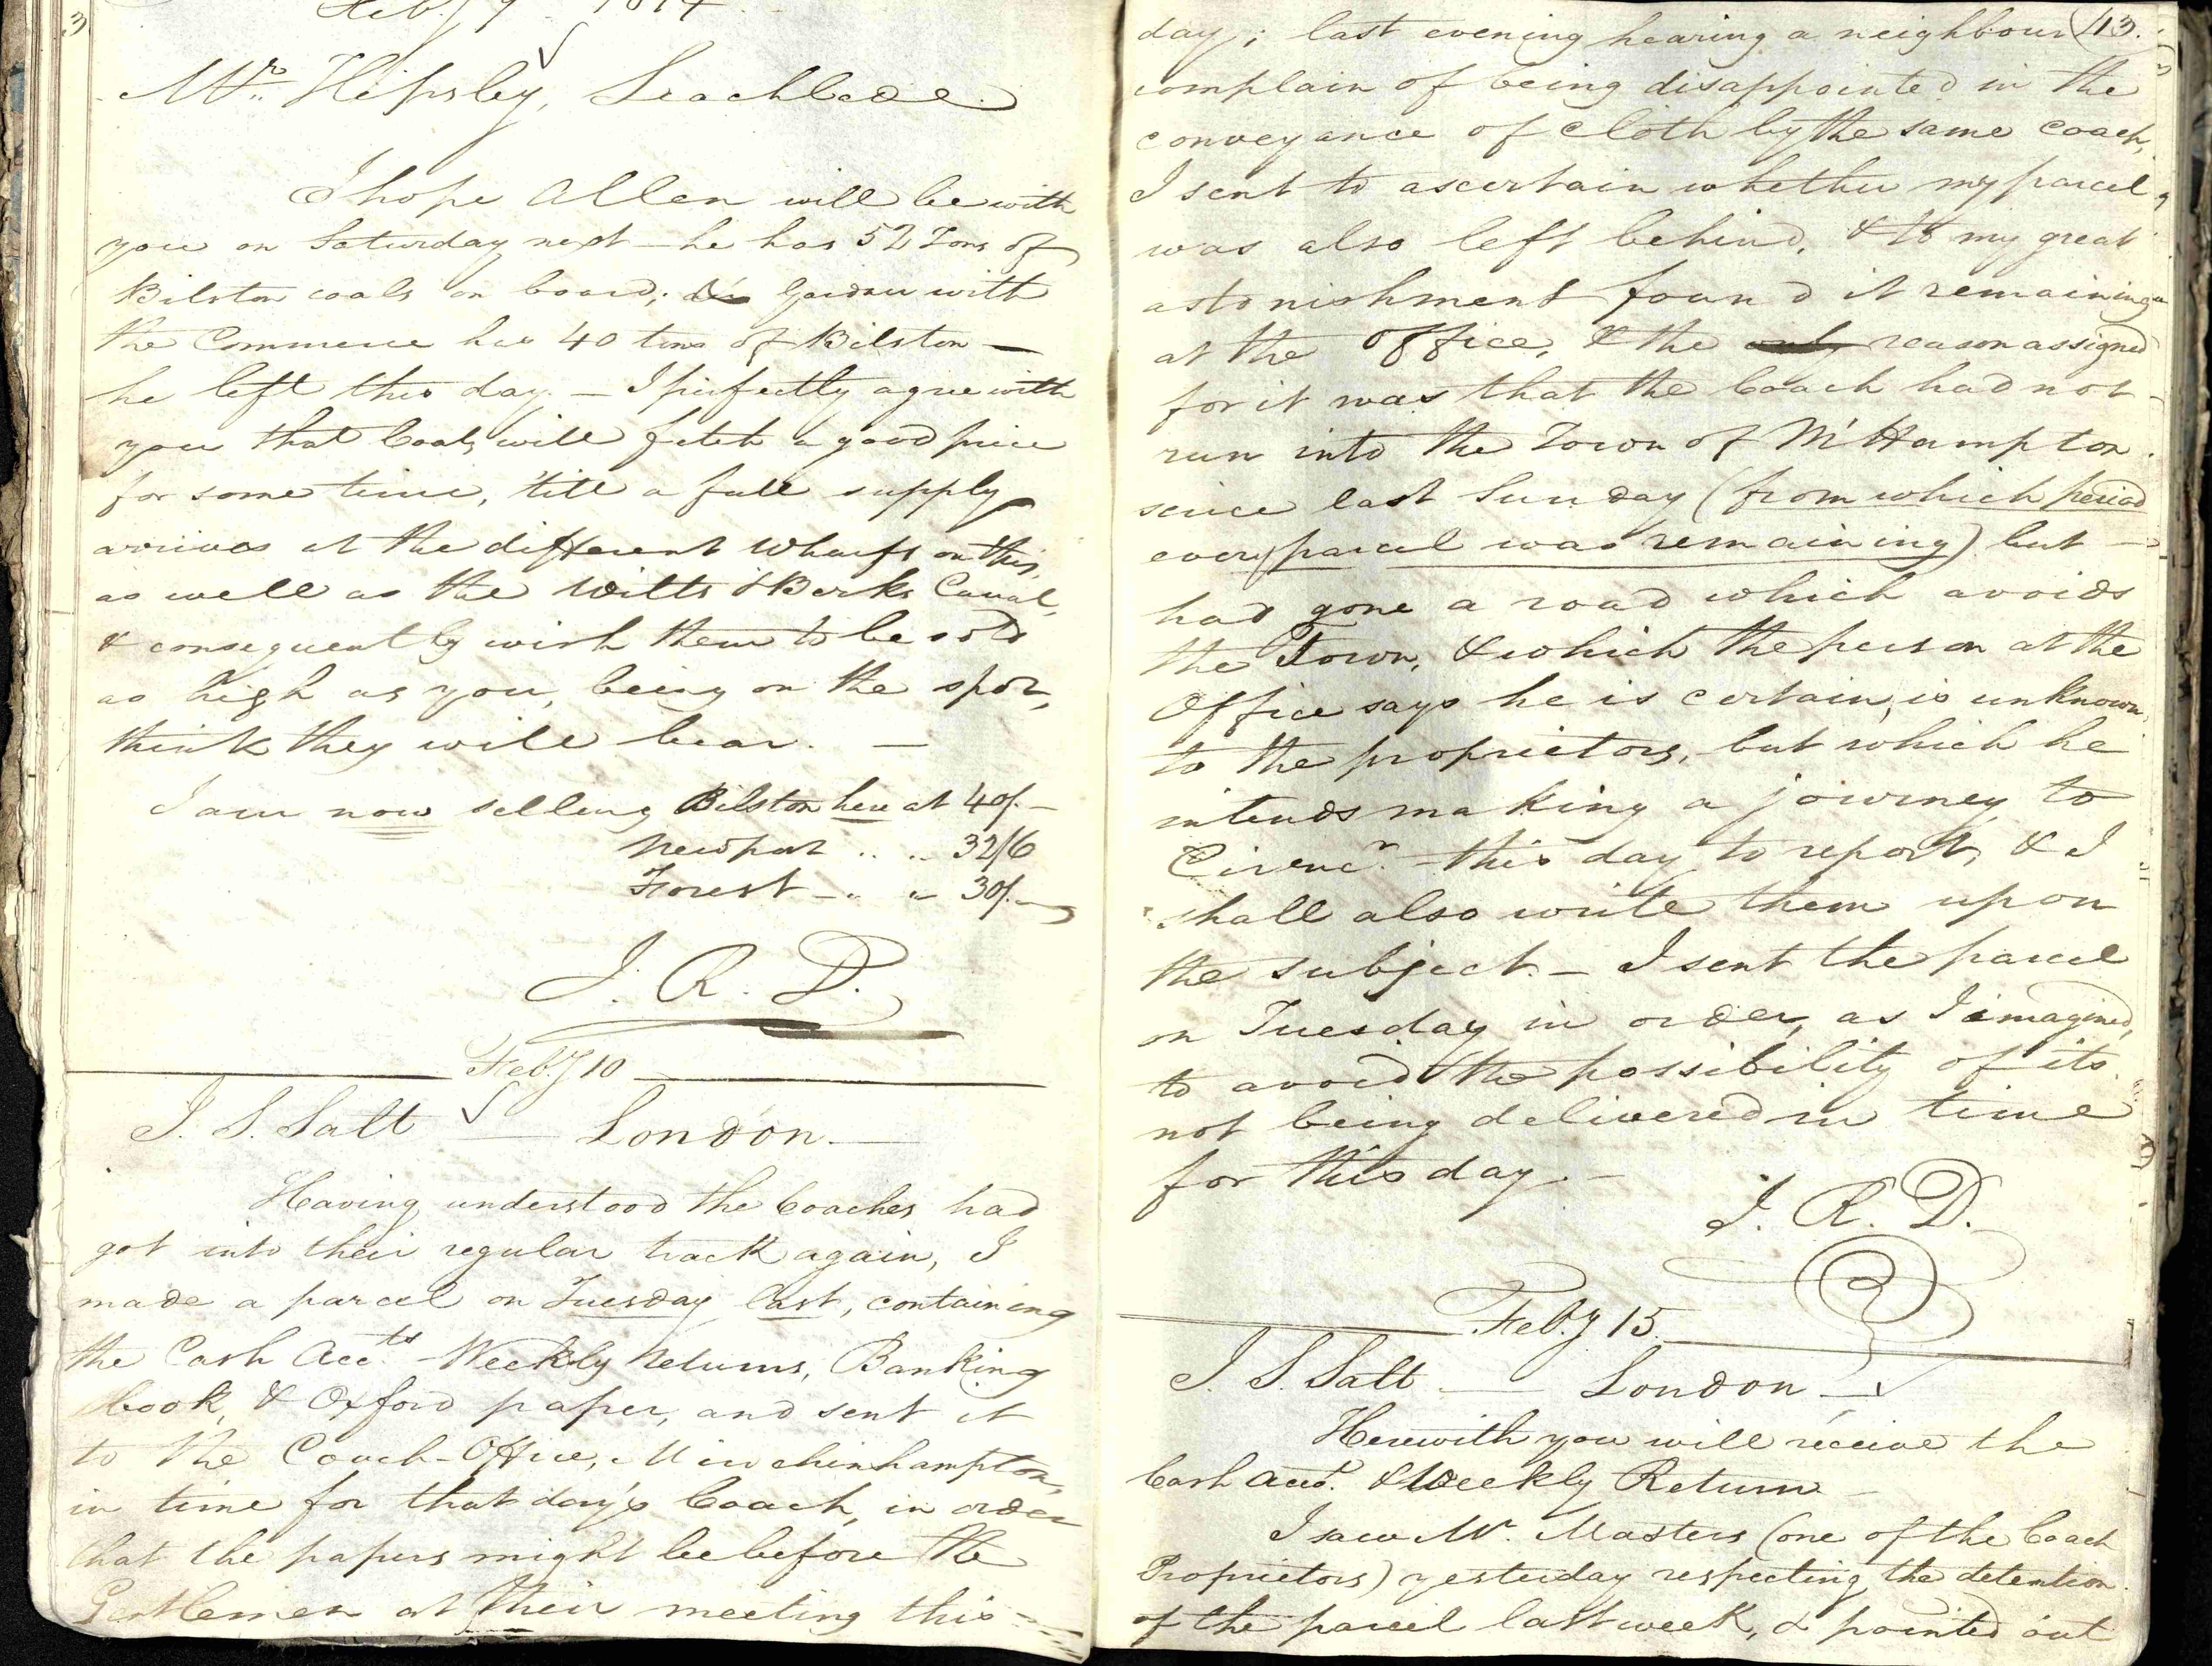 Feby 9 1814
Mr. Hipsley, Leachlade.
I hope Allen will be with
you on Saturday next — he has 52 Tons of
Bilston coals on board; Gardner with
the Commerce has 40 tons of Bilston —
he left this day. — I perfectly agree with
you that Coals will fetch a good price
for some time, 'till a full supply
arrives at the different Wharfs on this,
as well as the Wilts & Berks Canal,
& consequently wish them to be sold
as high as you, being on the spot,
think they will bear. —
I am now selling Bilston here at 40/. —
Newport .. .. 32/6
Forest — .. " 30/. —
J. R. D.
Feby 10
J. S. Salt — London. —
Having understood the Coaches had
got into their regular track again, I
made a parcel on Tuesday last, containing
the Cash Accts. - Weekly Returns, Banking
Book, & Oxford paper, and sent it
to the Coach-Office, Minchinhampton,
in time for that day's Coach, in order
that the papers might be before the
Gentlemen at their meeting this
13.
day; last evening hearing a neighbour
complain of being disappointed in the
conveyance of cloth by the same coach,
I sent to ascertain whether my parcel
was also left behind, & to my great
astonishment found it remaining
at the Office, & the only reason assigned
for it was that the Coach had not
run into the Town of M'Hampton
since last Sunday (from which period
every parcel was remaining) but —
had gone a road which avoids
the Town, & which the person at the
Office says he is certain, is unknown
to the proprietors, but which he
intends making a journey to
Cirencr. - this day to report, & I
shall also write them upon
the subject. — I sent the parcel
on Tuesday in order, as I imagined,
to avoid the possibility of its
not being delivered in time
for this day. —
J. R. D.
Feby 15.
J. S. Salt — London —
Herewith you will receive the
Cash Acct. & Weekly Return —
I saw Mr. Masters (one of the Coach
Proprietors) yesterday respecting the detention
of the parcel last week, & pointed out